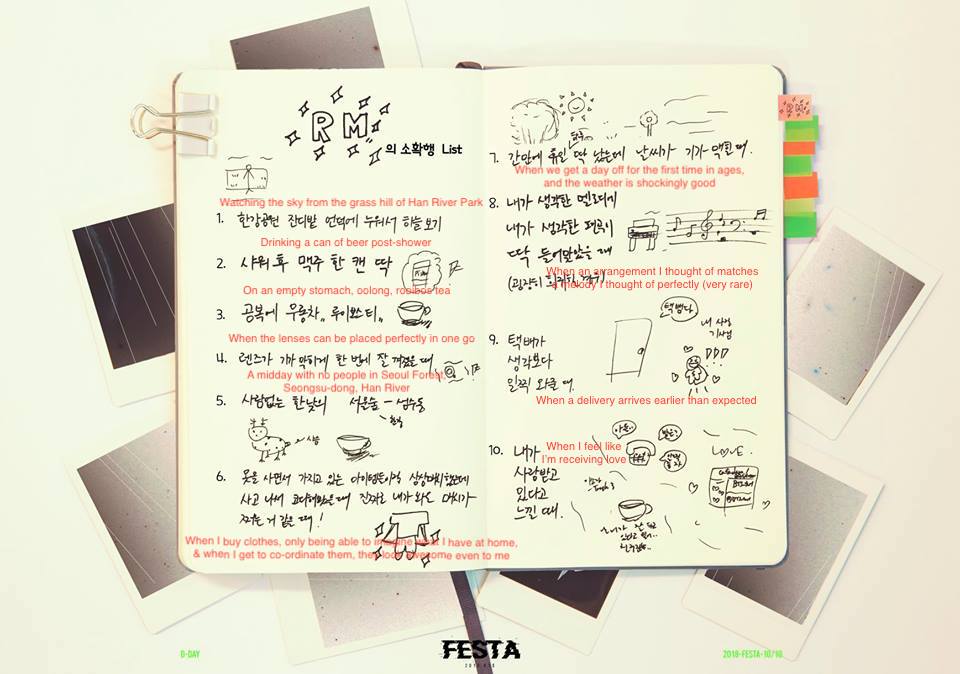 RM
의 소확행 List
RM
Watching the sky from the grass hill of Han River Park
1. 한강공원 잔디밭 언덕에 누워서 하늘 보기
Drinking a can of beer post-shower
2. 샤워 후 맥주 한 캔 딱
On an empty stomach, oolong, rooibos tea
3. 공복에 우롱차.. 루이보스티..
When the lenses can be placed perfectly in one go
4. 렌즈가 기가 막히게 한 번에 잘 껴졌을 때
A midday with no people in Seoul Forest,
Seongsu-dong, Han River
5. 사람없는 한낮의 서울숲 - 성수동
6. 옷을 사면서 가지고 있는 아이템들이랑 상상매치했는데
사고 나서 코디해봤을 때 진짜로 내가 봐도 대박
쩌는 거 같을 때!
When I buy clothes, only being able to imagine what I have at home,
& when I get to co-ordinate them, they look awesome even to me
7. 간만에 휴일 딱 났는데 날씨가 기가 맥힐 때.
When we get a day off for the first time in ages,
and the weather is shockingly good
8. 내가 생각한 멜로디에
내가 생각한 편곡이
딱 들어맞았을 때
When an arrangement I thought of matches
a melody I thought of perfectly (very rare)
택뱁니다
9. 택배가
생각보다
일찍 와줄 때.
When a delivery arrives earlier than expected
10. 내가
사랑받고
있다고
느낄 때.
When I feel like
I'm receiving love
LOVE.
D-DAY
FESTA
2018-FESTA-10/10